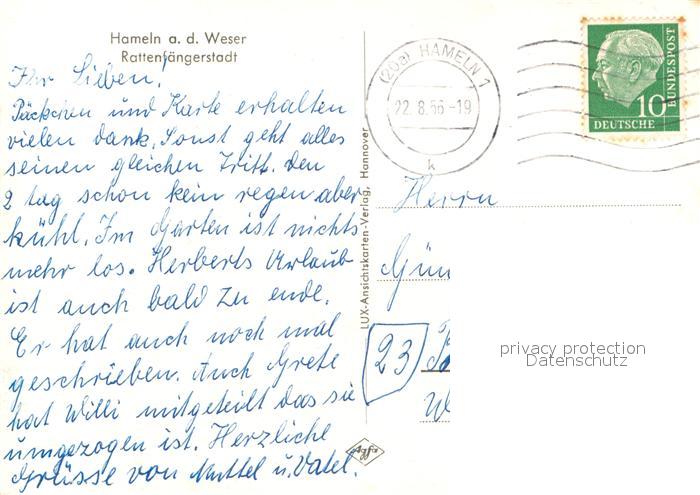 Hameln a. d. Weser
Rattenfängerstadt
Ihr Lieben!
Päckchen und Karte erhalten
vielen dank. Sonst geht alles
seinen gleichen Tritt. den
2 tag schon kein regen aber
kühl. Im Garten ist nichts
mehr los. Herberts Urlaub
ist auch bald zu ende.
Er hat auch noch mal
geschrieben. Auch Grete
hat Willi mitgeteilt das sie
umgezogen ist. Herzliche
Grüsse von Muttel u. Vatel.
LUX-Ansichtskarten-Verlag, Hannover
Agfa
(20a) HAMELN 1
22.8.56-19
k
DEUTSCHE
BUNDESPOST
10
Herrn
Gün
23
privacy protection
Datenschutz